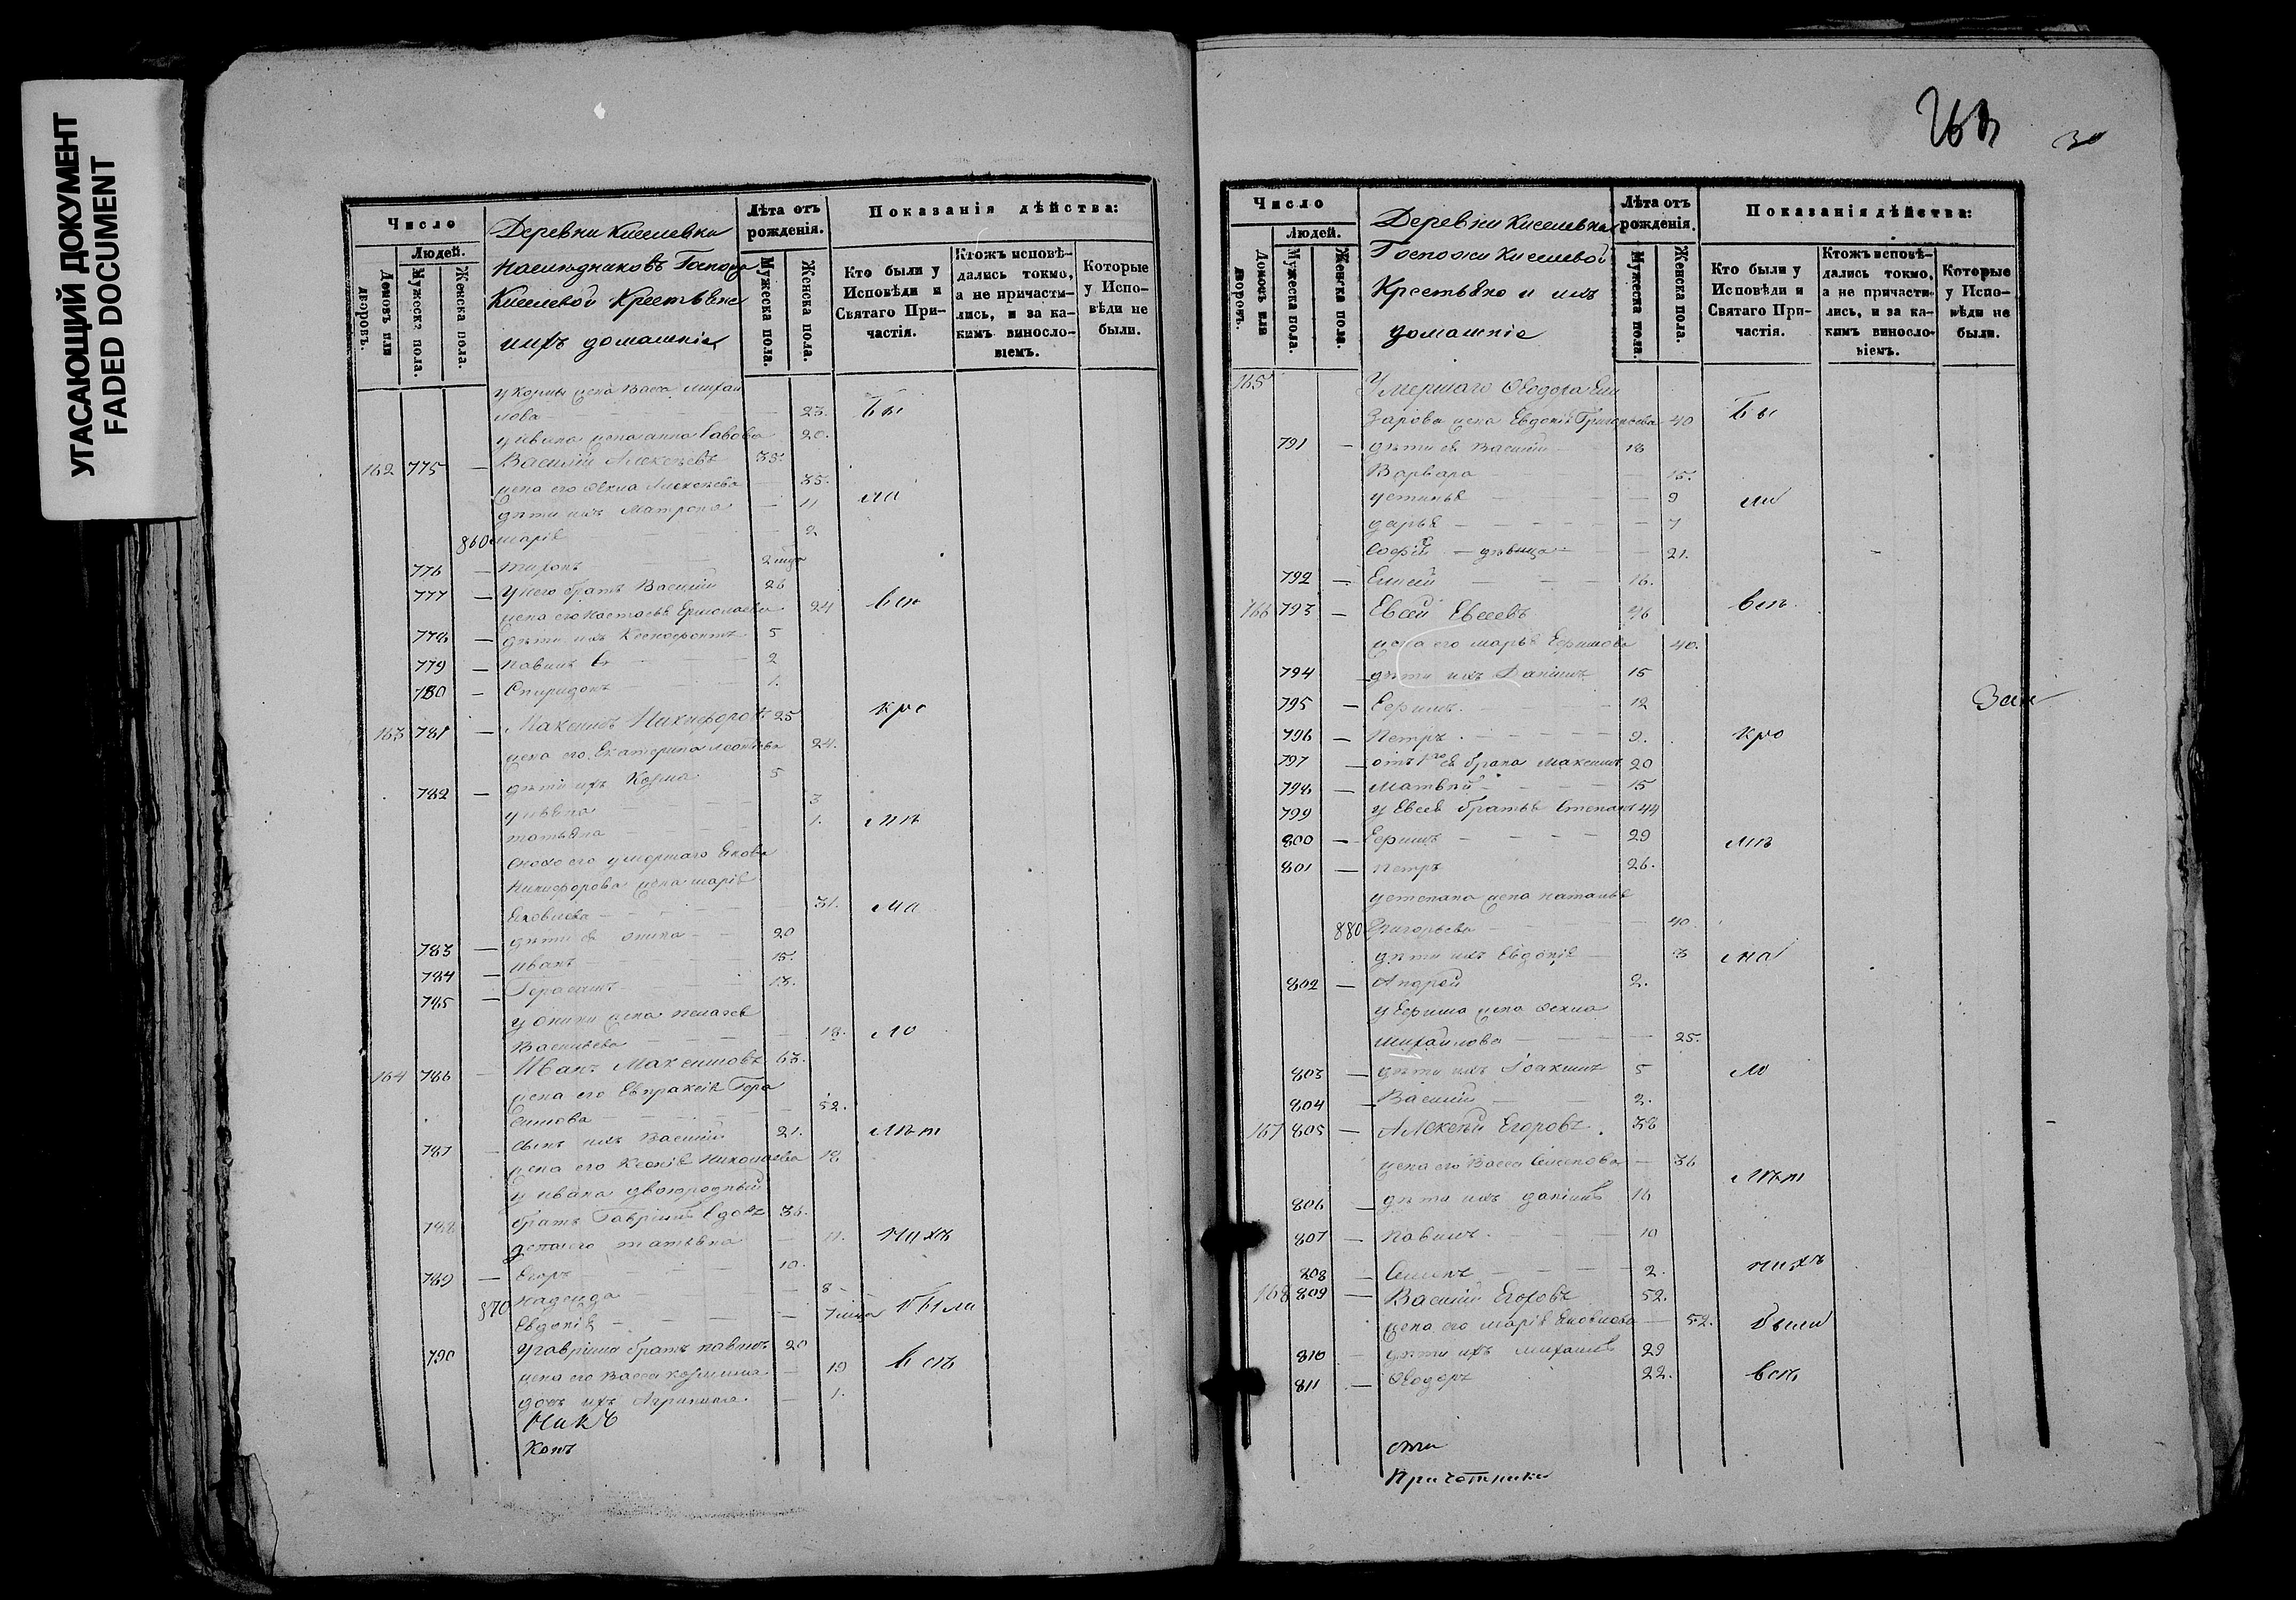 УГАСАЮЩИЙ ДОКУМЕНТ
FADED DOCUMENT
Число
Людей.
Домовъ или дворовъ.
Мужеска пола.
Женска пола.
Деревни Киселевки
наследниковъ
Киселевой Крестьяне
ихъ домашнія
Лѣта отъ рождения.
Мужеска пола.
Женска пола.
Показанія дѣйства:
Кто были у Исповѣди и Святаго Причастія.
Ктожъ исповѣдались токмо, а не причастились, и за какимъ винословіемъ.
Которые у Исповѣди не были.
у Козмы жена Васса Михаи
лова 23. Бы
у ивана жена анна Савова 20.
162 775 Василій Алексѣевъ 35.
жена его Алексѣева 35.
дѣти ихъ Матрона 11 ли
860 марія 2
776 тихонъ 2
777 у него братъ Василій 26
жена его настасья Ермолаева 24 всѣ
778 дѣти ихъ Ксенофонтъ 5
779 павелъ 2
780 Спиридонъ 1.
163 781 Максимъ Никифоровъ 25 кро
жена его Екатерина 24.
782 дѣти ихъ Козма 5
3
татьяна 1. мѣ
умершаго Якова
Никифорова жена марія
Яковлева 31. ма
783 дѣти ея 20
784 иванъ 15.
785 Герасимъ 13.
жена пелагея
Васильева 18. ло
164 786 Иванъ Максимовъ 63.
жена его Евпраксія Гера
симова 52.
787 сынъ ихъ Василій 21. лѣт
жена его Ксенія Николаева 18
у ивана двоюродный
788 братъ Гавріилъ 36.
татьяна 11. нихъ
789 Егоръ 10.
надежда 8
870 Евдокія были
790 у гавріила братъ павелъ 20
жена его Васса 19 всѣ
дочь ихъ Агрипина 1.
Никъ
Копъ
30
Число
Людей.
Домовъ или дворовъ.
Мужеска пола.
Женска пола.
Деревни Киселевки
Госпожи Киселевой
Крестьяне и ихъ
домашніе
Лѣта отъ рождения.
Мужеска пола.
Женска пола.
Показанія дѣйства:
Кто были у Исповѣди и Святаго Причастія.
Ктожъ исповѣдались токмо, а не причастились, и за какимъ винословіемъ.
Которые у Исповѣди не были.
165 Умершаго Ѳеодора Ели
зарова жена Евдокія Григорьева 40 Бы
791 дѣти ея Василій 18
Варвара 15.
устинья 9 ли
дарья 7
Софія дѣвица 21.
792 Елисей 16.
166 793 Евсей Евсеевъ 46 всѣ
жена его марья Ефимова 40.
794 дѣти ихъ Даніилъ 15
795 Ефимъ 12
796 Петръ 9. кро
797 брата Максимъ 20
798 Матвѣй 15
799 у Евсея братья Степанъ 44
800 Ефимъ 29 мѣ
801 петръ 26.
у степана жена наталья
880 Григорьева 40.
дѣти ихъ Евдокія 3 ма
802 Андрей 2.
у Ефима жена
михайлова 25.
803 дѣти ихъ Іоакимъ 5 ло
804 Василій 2.
167 805 Алексѣй Егоровъ 38
жена его Васса Семенова 36
лѣт
806 дѣти ихъ даніилъ 16
807 Павелъ 10
808 Семенъ 2. нихъ
168 809 Василій Егоровъ 52.
жена его марія Яковлева 52. были
810 дѣти ихъ михаилъ 29
811 Ѳеодоръ 22. всѣ
Причетники